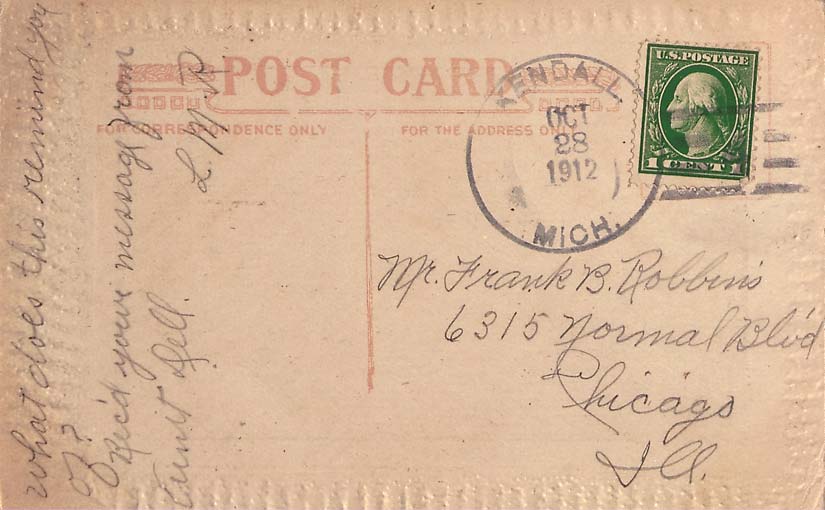 POST CARD
FOR CORRESPONDENCE ONLY
FOR THE ADDRESS ONLY
KENDALL
OCT
28
1912
MICH.
U.S. POSTAGE
1 CENT 1
What does this remind you
of?
Rec'd your message from
Aunt Dell.
L. M.
Mr. Frank B. Robbins
6315 Normal Blv'd
Chicago
Ill.